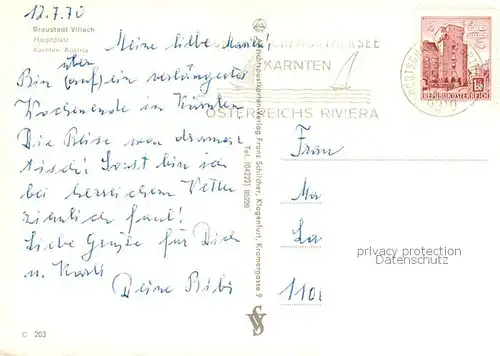 12.7.70
Draustadt Villach
Hauptplatz
Kärnten, Austria
Meine liebe
Bin (auf) über ein verlängertes
Wochenende in Kärnten
Die Reise war dramatisch! Sonst bin ich
bei herrlichem Wetter
ziemlich faul!
Liebe Grüße für Dich
u. Karli
Deine Bibi
© 203
Stichpostkarten-Verlag Franz Schilcher, Klagenfurt, Kramergasse 9
Tel. (04222) 85228
WÖRTHERSEE
KÄRNTEN
ÖSTERREICHS RIVIERA
9210
REPUBLIK ÖSTERREICH
Frau
Ma
La
1101
privacy protection
Datenschutz